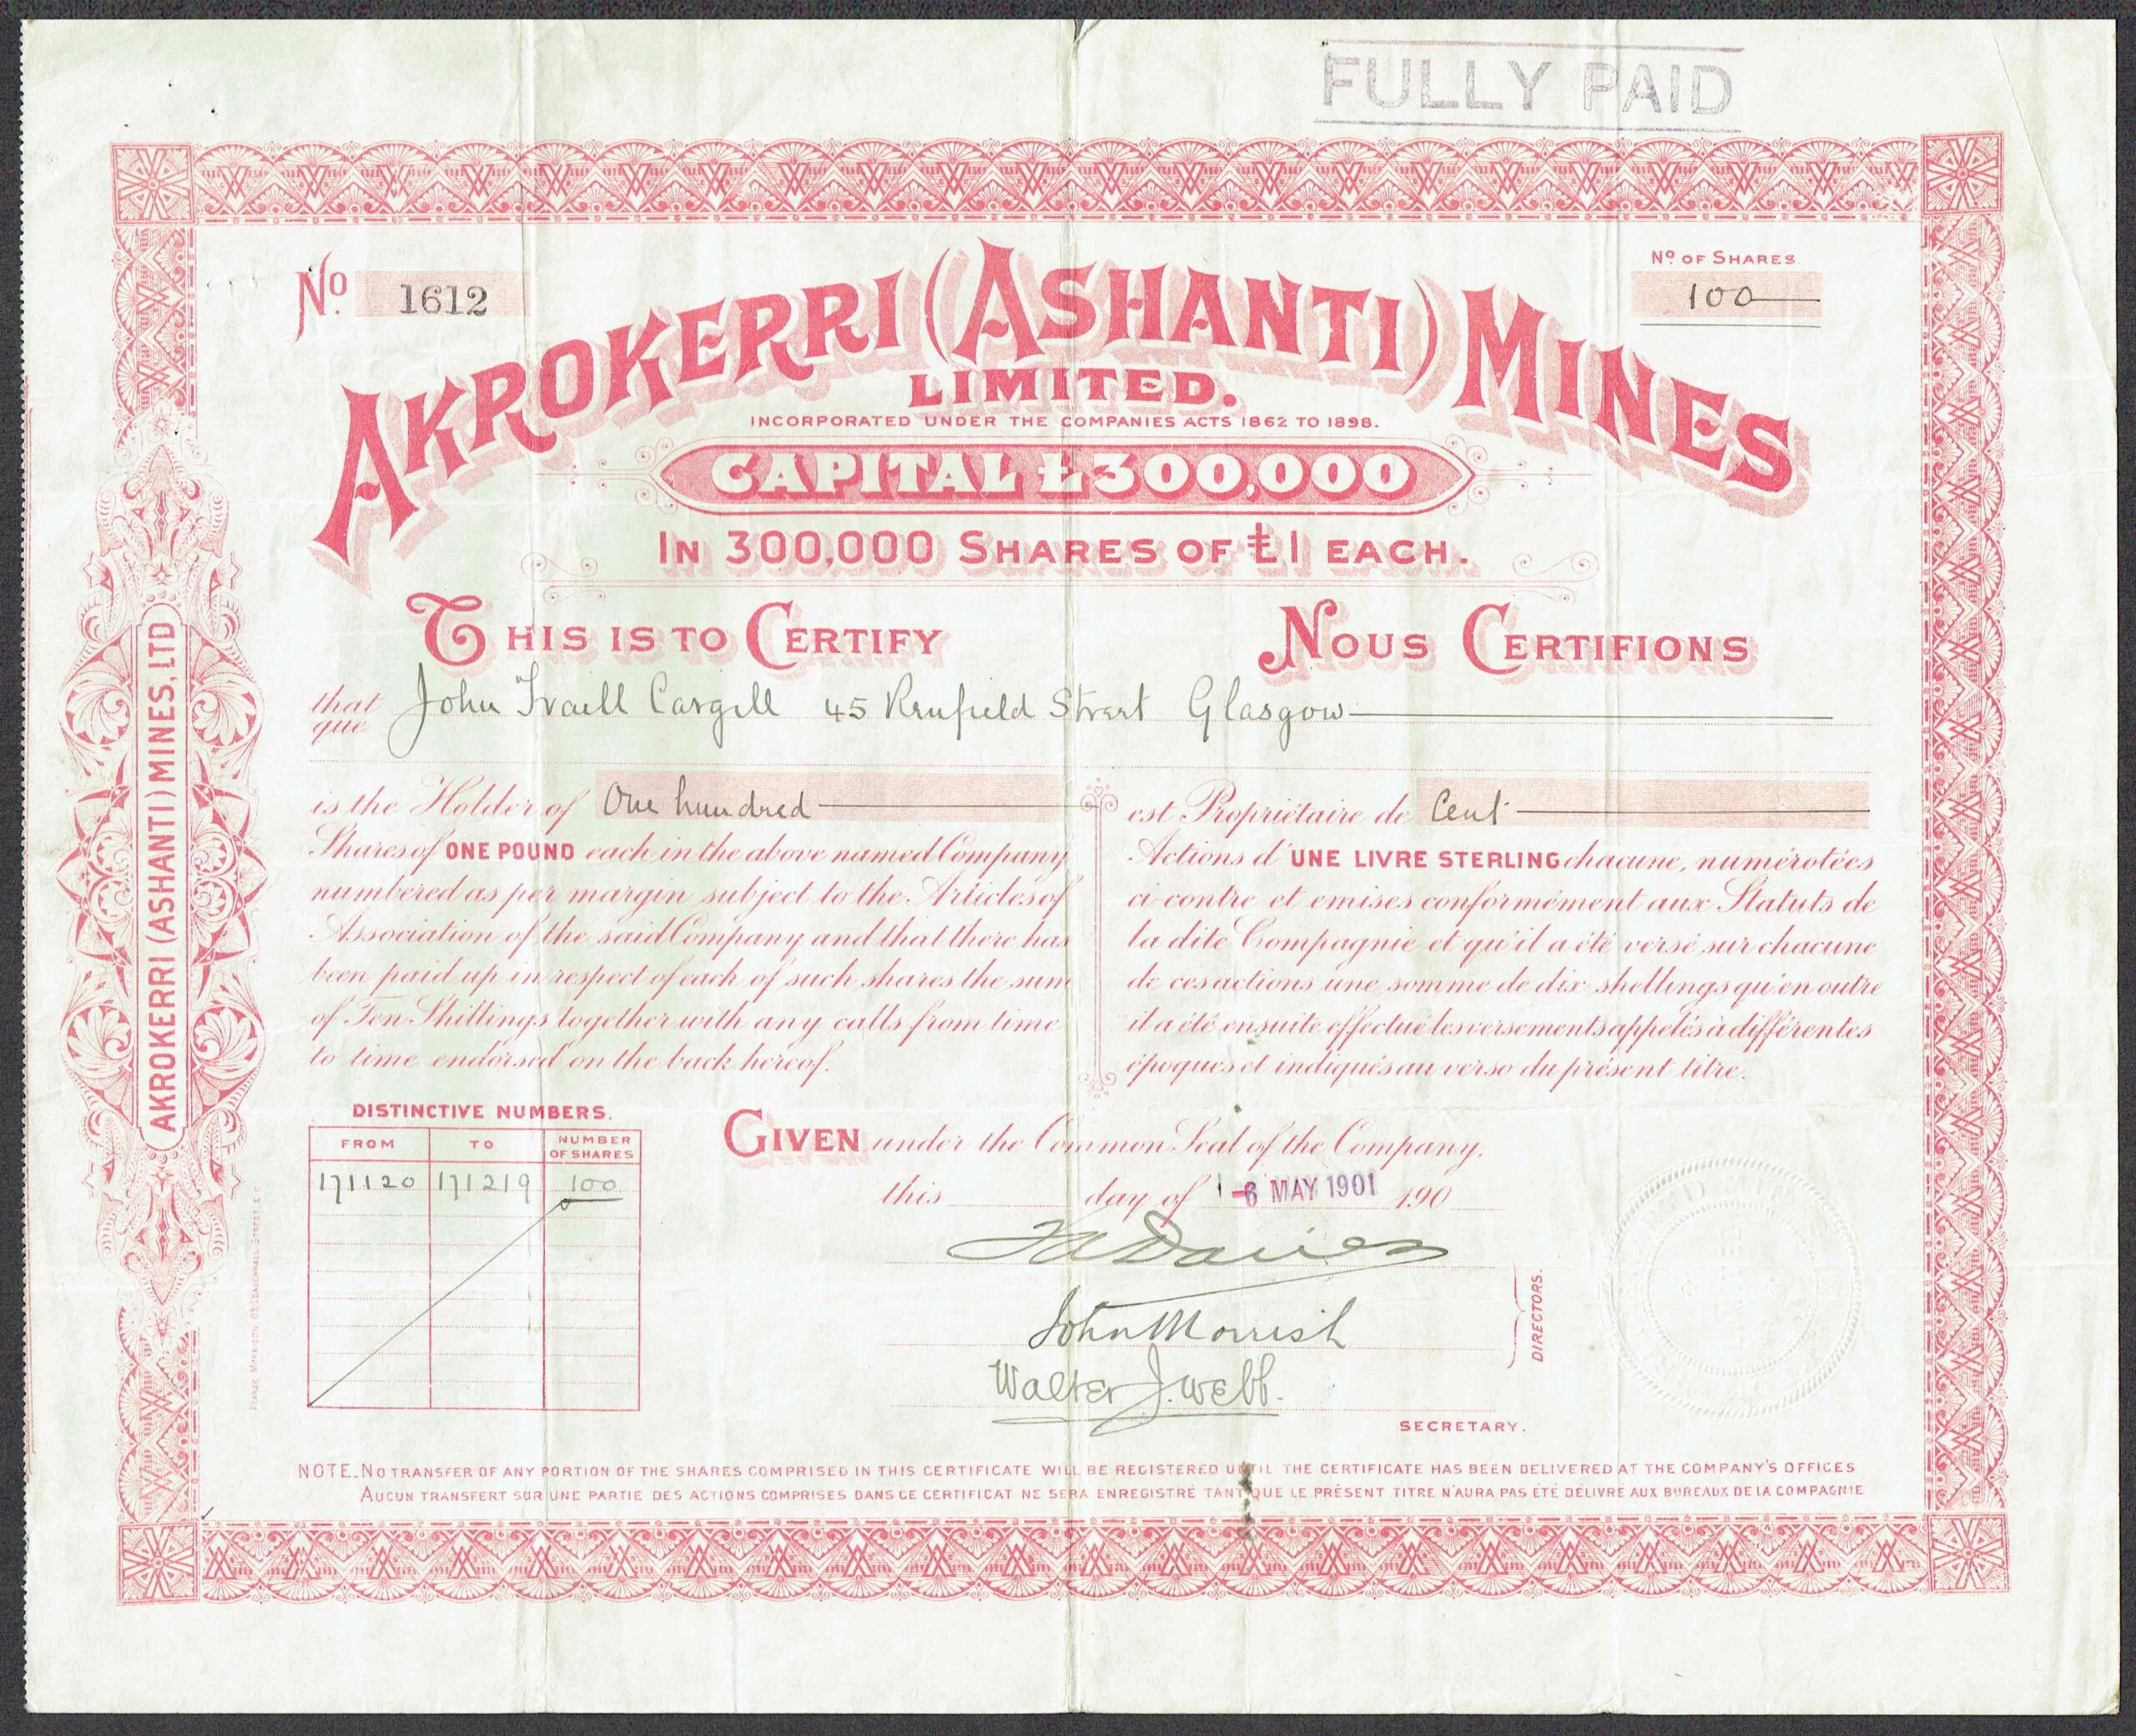 FULLY PAID
No. 1612
No OF SHARES
100
AKROKERRI (ASHANTI) MINES
LIMITED.
INCORPORATED UNDER THE COMPANIES ACTS 1862 TO 1898.
CAPITAL £300,000
IN 300,000 SHARES OF £1 EACH.
THIS IS TO CERTIFY
NOUS CERTIFIONS
that
que
John Traill Cargill 45 Renfield Street Glasgow
is the Holder of One hundred
Shares of ONE POUND each in the above named Company
numbered as per margin subject to the Articles of
Association of the said Company and that there has
been paid up in respect of each of such shares the sum
of Ten Shillings together with any calls from time
to time endorsed on the back hereof.
est Propriétaire de Cent
Actions d'UNE LIVRE STERLING chacune, numérotées
ci-contre et emises conformément aux Statuts de
la dite Compagnie et qu'il a été versé sur chacune
de ces actions une somme de dix shellings qu'en outre
il a été ensuite effectué les versements appelés à différentes
époques et indiqués au verso du présent titre.
DISTINCTIVE NUMBERS.
FROM TO NUMBER OF SHARES
171120 171219 100
GIVEN under the Common Seal of the Company,
this day of -6 MAY 1901 190
Davies
John Morrish
DIRECTORS.
Walter J. Webb.
SECRETARY.
NOTE_NO TRANSFER OF ANY PORTION OF THE SHARES COMPRISED IN THIS CERTIFICATE WILL BE REGISTERED UNTIL THE CERTIFICATE HAS BEEN DELIVERED AT THE COMPANY'S OFFICES
AUCUN TRANSFERT SUR UNE PARTIE DES ACTIONS COMPRISES DANS CE CERTIFICAT NE SERA ENREGISTRÉ TANT QUE LE PRÉSENT TITRE N'AURA PAS ÉTÉ DÉLIVRÉ AUX BUREAUX DE LA COMPAGNIE
AKROKERRI (ASHANTI) MINES, LTD